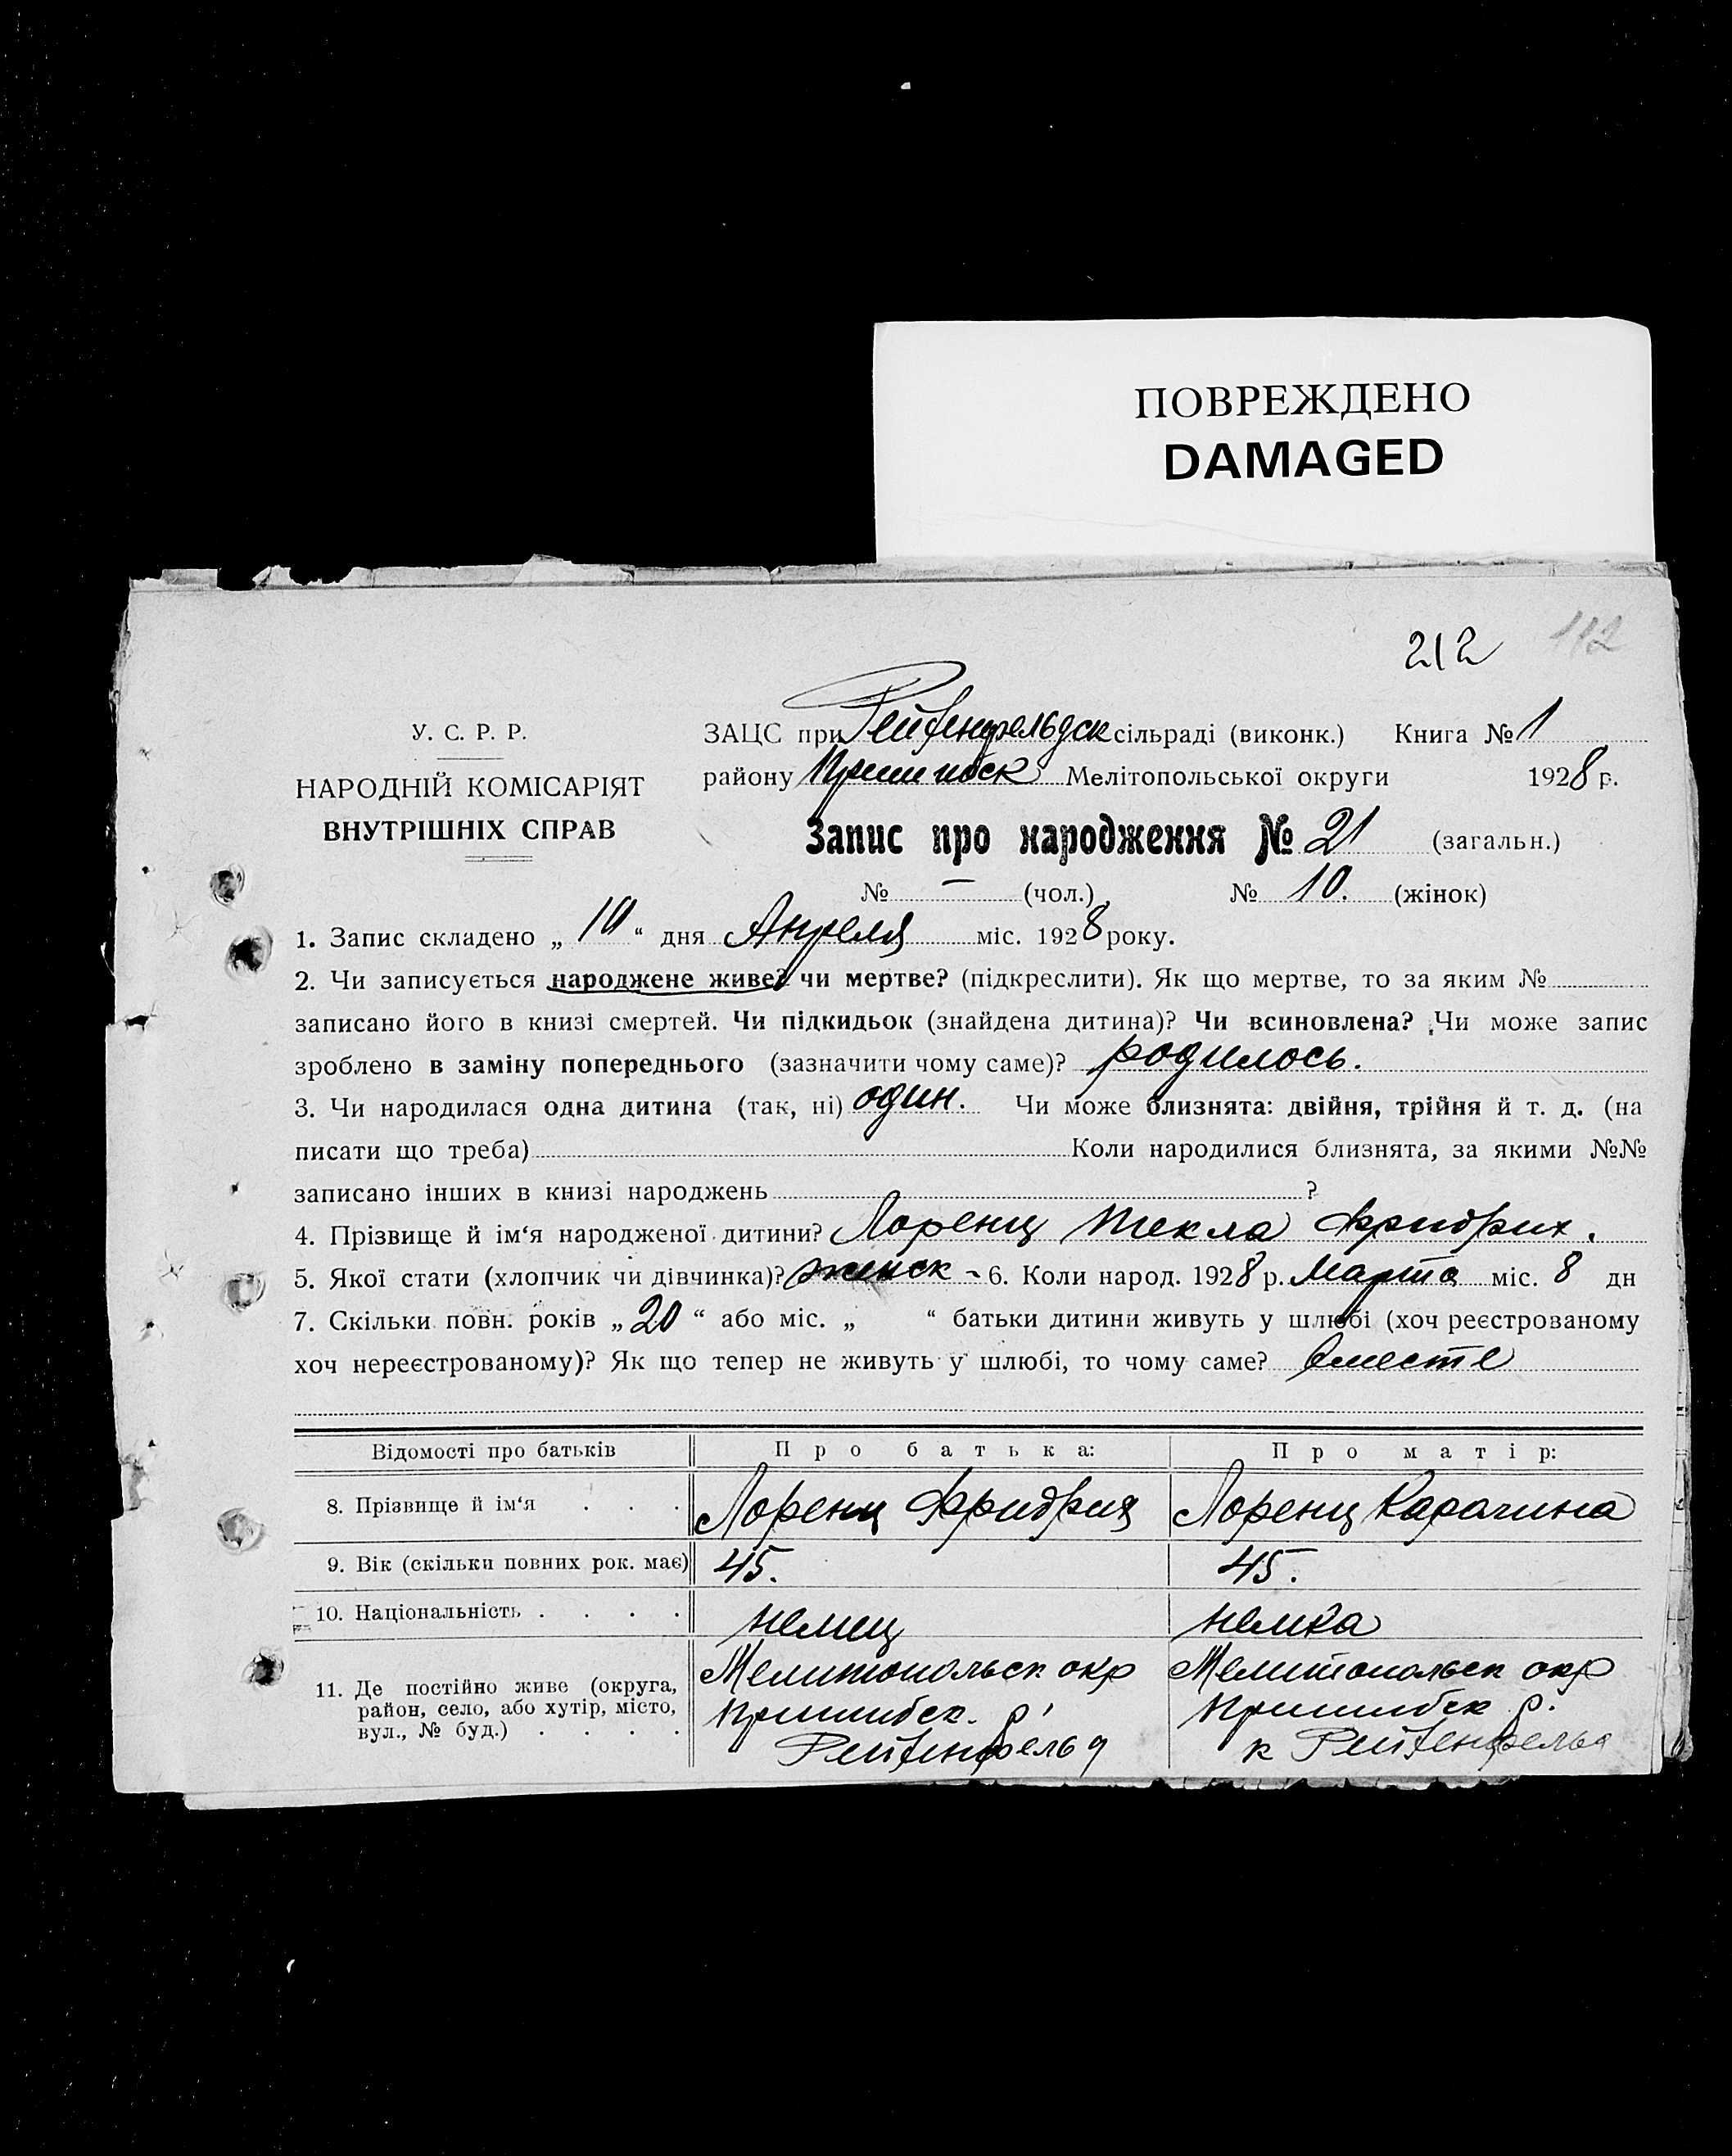 ПОВРЕЖДЕНО
DAMAGED
212 112
У. С. Р. Р.
НАРОДНІЙ КОМІСАРІЯТ
ВНУТРІШНІХ СПРАВ
ЗАЦС при Рейхенфельдск сільраді (виконк.) Книга № 1
району Пришибск Мелітопольської округи 1928 р.
Запис про народження № 21 (загальн.)
№ — (чол.) № 10. (жінок)
1. Запис складено „ 10 “ дня Апреля міс. 1928 року.
2. Чи записується народжене живе? чи мертве? (підкреслити). Як що мертве, то за яким №
записано його в книзі смертей. Чи підкидьок (знайдена дитина)? Чи всиновлена? Чи може запис
зроблено в заміну попереднього (зазначити чому саме)? родилось.
3. Чи народилася одна дитина (так, ні) один. Чи може близнята: двійня, трійня й т. д. (на
писати що треба) Коли народилися близнята, за якими №№
записано інших в книзі народжень ?
4. Прізвище й ім‘я народженої дитини? Лоренц Текла Фридрих.
5. Якої стати (хлопчик чи дівчинка)? женск - 6. Коли народ. 1928 р. Марта міс. 8 дн
7. Скільки повн. років „ 20 “ або міс. „ “ батьки дитини живуть у шлюбі (хоч реєстрованому
хоч нереєстрованому)? Як що тепер не живуть у шлюбі, то чому саме? вместе
Відомості про батьків Про батька: Про матір:
8. Прізвище й ім‘я . . . Лоренц Фридрих Лоренц
9. Вік (скільки повних рок. має) 45. 45.
10. Національність . . . . немец немка
11. Де постійно живе (округа,
район, село, або хутір, місто,
вул., № буд.) . . . .
Мелитопольск окр
Пришибск. р.
Рейхенфельд
Мелитопольск окр
Пришибск р.
к Рейхенфельд